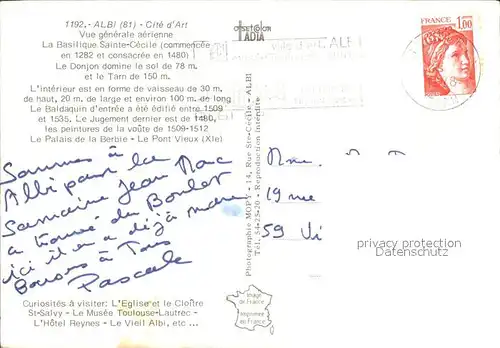 1192.- ALBI (81) - Cité d'Art
Vue générale aérienne
La Basilique Sainte-Cécile (commencée
en 1282 et consacrée en 1480)
Le Donjon domine le sol de 78 m.
et le Tarn de 150 m.
L'intérieur est en forme de vaisseau de 30 m.
de haut, 20 m. de large et environ 100 m. de long
Le Baldaquin d'entrée a été édifié entre 1509
et 1535. Le Jugement dernier est de 1480,
les peintures de la voûte de 1509-1512
Le Palais de la Berbie - Le Pont Vieux (XIe)
Sommes à
Albi pour la
Semaine Jean Marc
a trouvé du Boulot
ici il en a déjà marre
Bisous à Tous
Pascale
Curiosités à visiter: L'Eglise et le Cloître
St-Salvy - Le Musée Toulouse-Lautrec -
L'Hôtel Reynes - Le Vieil Albi, etc ...
OFFSETCOLOR
IATIA
Photographie MOPY - 14, Rue Ste-Cécile - ALBI
Tél. 54-25-20 - Reproduction Interdite
Image de
France
Imprimée en
France
FRANCE
1,00
ALBI
Mme.
19 rue
59
privacy protection
Datenschutz